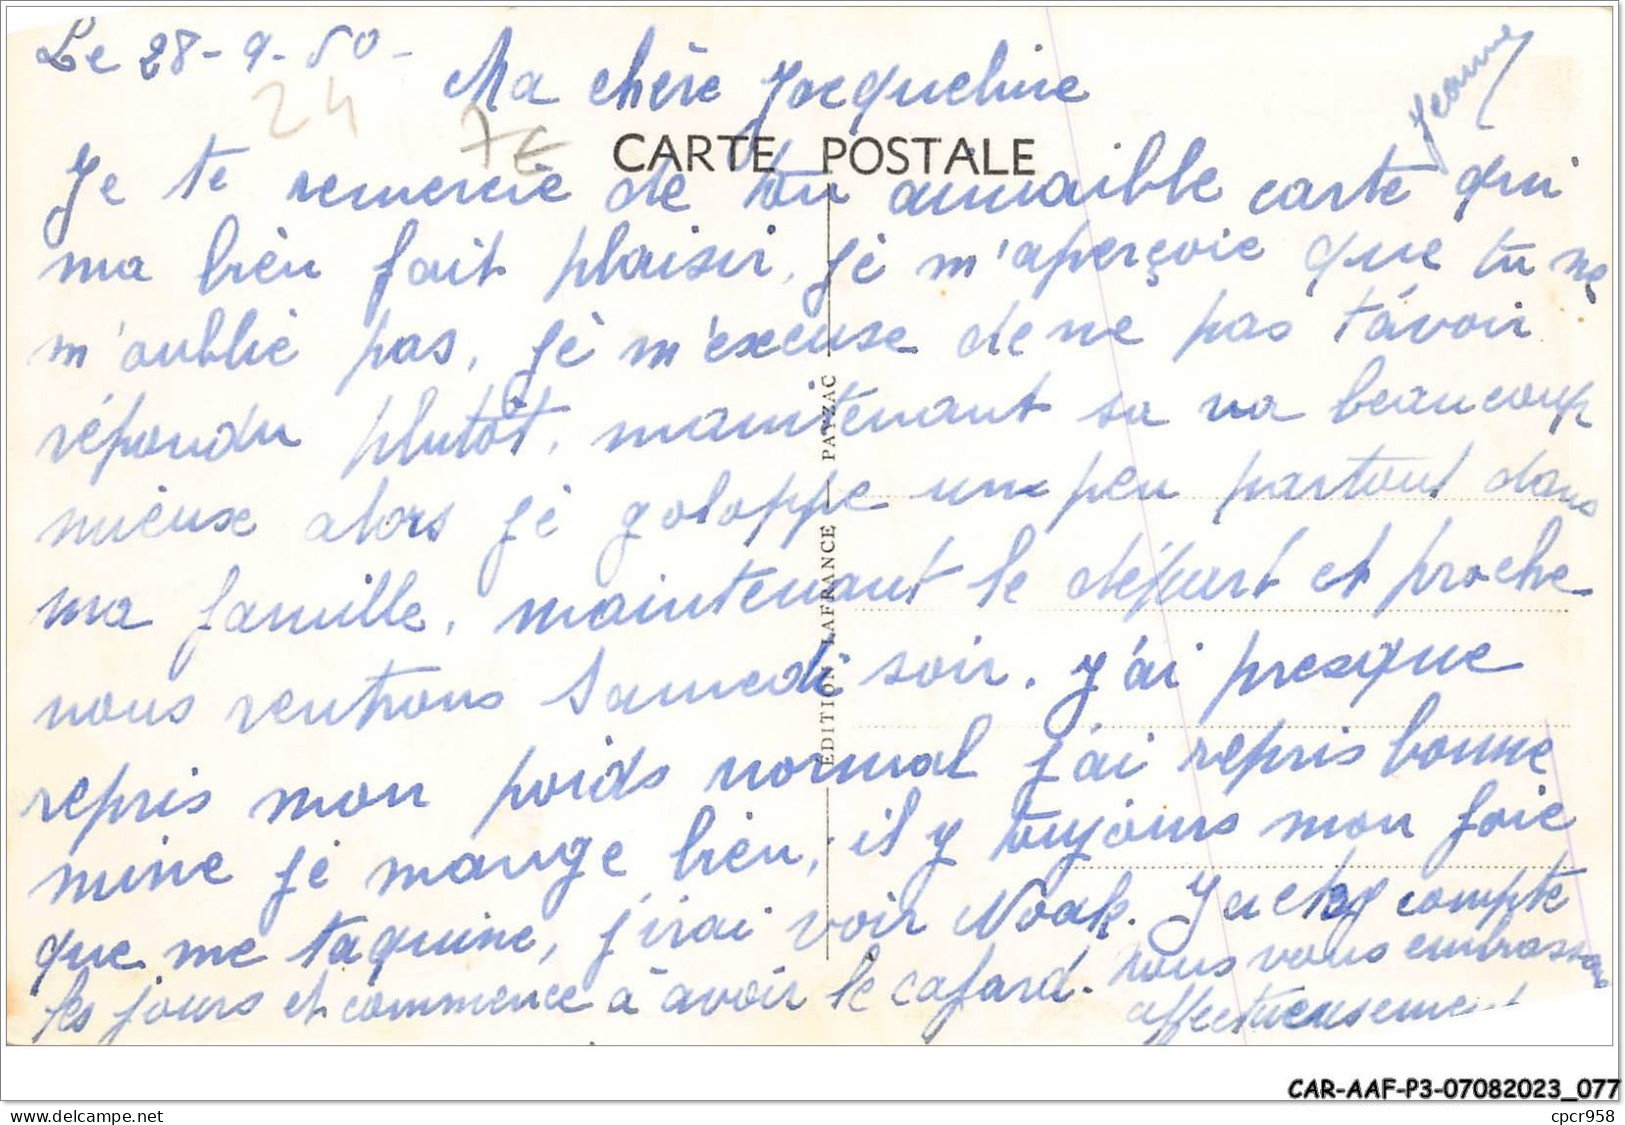 Le 28-9-50-
Ma chère Jacqueline
Jeanne
24
7€
CARTE POSTALE
Je te remercie de ton aimaible carte qui
ma bien fait plaisir, je m'aperçoie que tu ne
m'oublie pas, je m'excuse de ne pas t'avoir
répondu plutôt, maintenant sa va beaucoup
mieuse alors je galoppe un peu partout dans
ma famille, maintenant le départ et proche
nous rentrons Samedi soir. J'ai presque
repris mon poids normal j'ai repris bonne
mine je mange bien, il y toujours mon foie
que me taquine, j'irai voir Noak. Jacky compte
les jours et commence à avoir le cafard. nous vous embrassons
affectueusement
EDITION LAFRANCE - PAYZAC
CAR-AAF-P3-07082023_077
www.delcampe.net
cpcr958